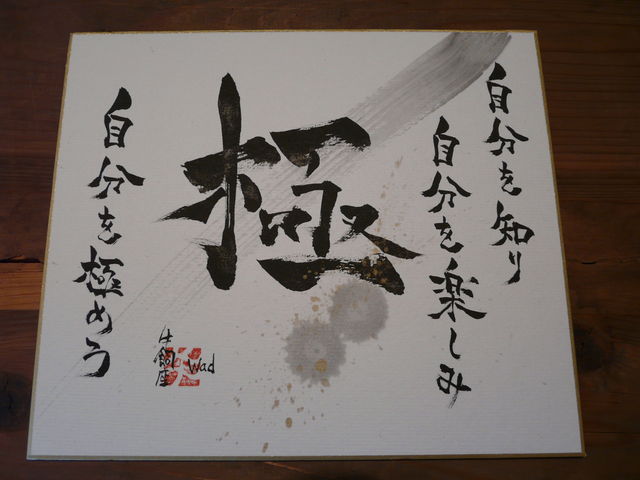 自分を知り
自分を楽しみ
極
自分を極めう
wad